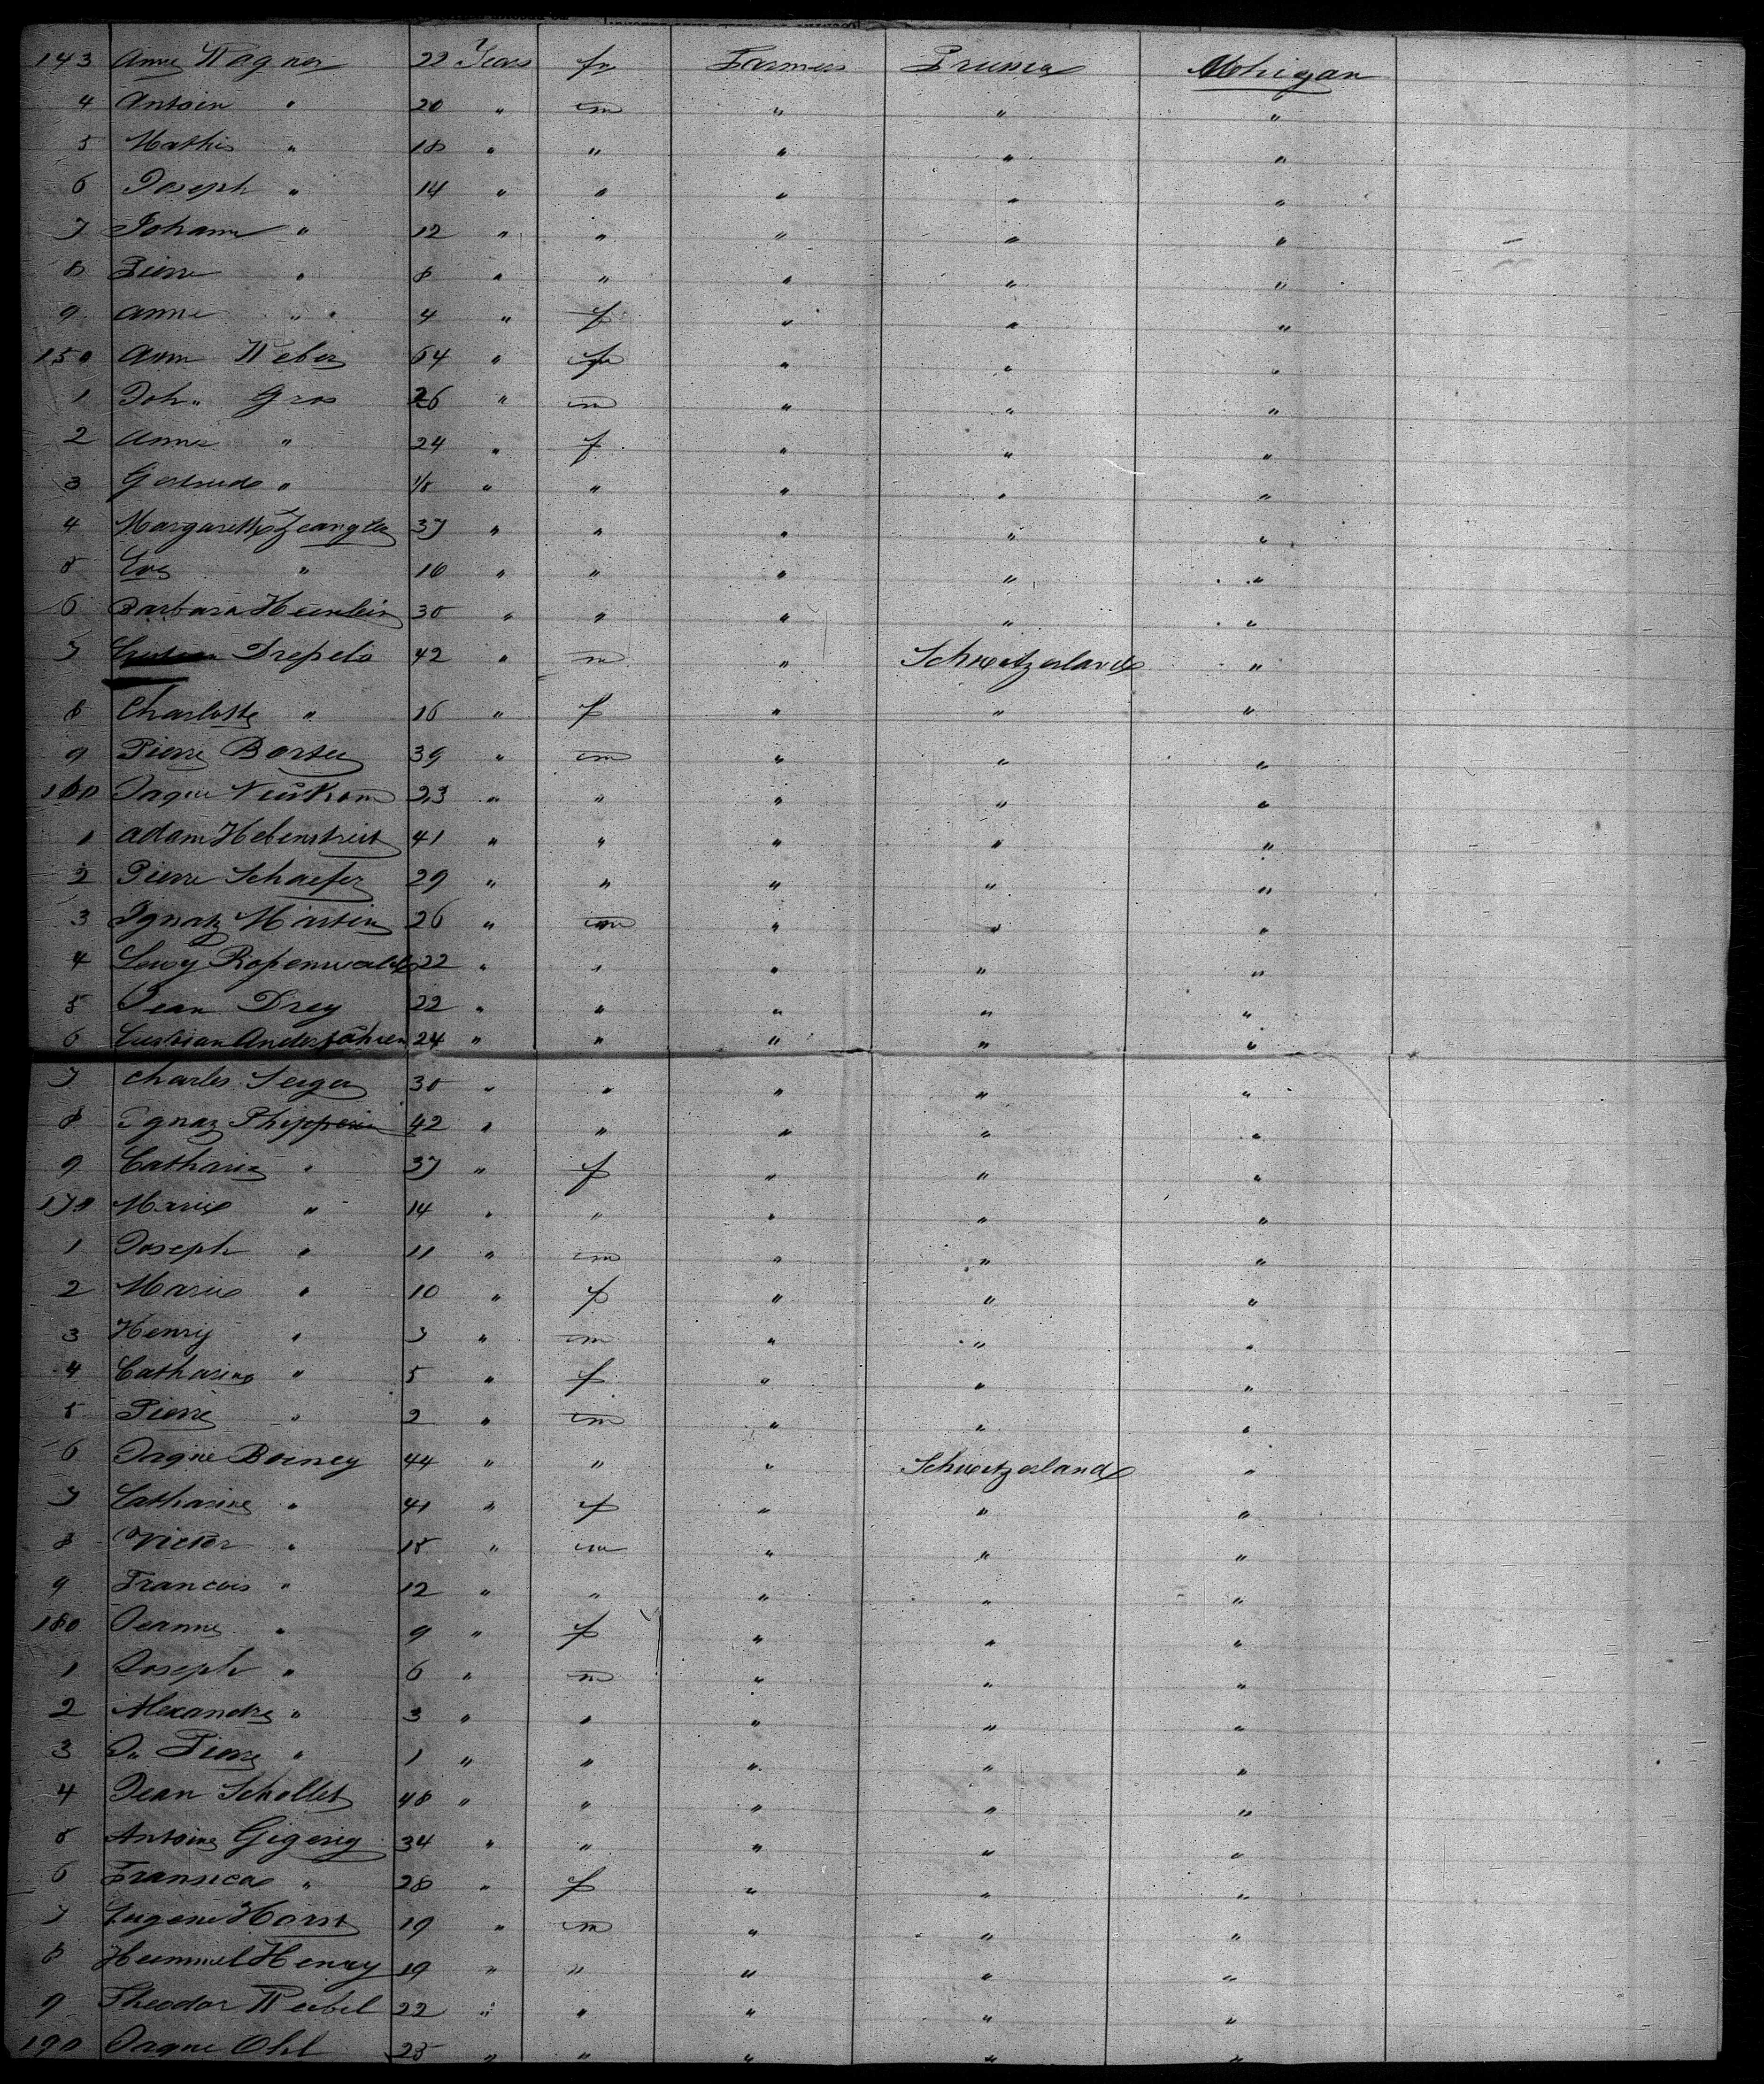 143 Anne Wagner 22 Years f Farmers Prusia Mohigan
4 Antoin " 20 " m " " "
5 Mathis " 18 " " " " "
6 Joseph " 14 " " " " "
7 Johann " 12 " " " " "
8 Pierre " 8 " " " " "
9 Anne " " 4 " f " " "
150 Ann Weber 64 " f " " "
1 Joh" Gros 26 " m " " "
2 Anne " 24 " f " " "
3 Gertrude " 1/8 " " " " "
4 Margareth 37 " " " " "
5 Eva " 16 " " " " "
6 Barbara Heinlein 30 " " " " "
7 Drepels 42 " m " Schweitzerland "
8 Charlotte " 16 " f " " "
9 Pierre Borter 39 " m " " "
160 Jaque 23 " " " " "
1 Adam Hebenstreit 41 " " " " "
2 Pierre Schaefer 29 " " " " "
3 Ignatz Martin 26 " m " " "
4 Louy Ropenwald 22 " " " " "
5 Jean Drey 22 " " " " "
6 Anderfahren 24 " " " " "
7 Charles Seiger 30 " " " " "
8 Ignaz 42 " " " " "
9 Catharin " 37 " f " " "
170 Marie " 14 " " " " "
1 Joseph " 11 " m " " "
2 Marie " 10 " f " " "
3 Henry " 7 " m " " "
4 Catharine " 5 " f " " "
5 Pierre " 2 " m " " "
6 Jaque Boiney 44 " " " Schweitzerland "
7 Catharine " 41 " f " " "
8 Victor " 15 " m " " "
9 Francois " 12 " " " " "
180 Jeanne " 9 " f " " "
1 Joseph " 6 " m " " "
2 Alexandre " 3 " " " " "
3 J" Pierre " 1 " " " " "
4 Jean Schollet 48 " " " " "
5 Antoine Gigerig 34 " " " " "
6 Fransica " 28 " f " " "
7 Eugene Horst 19 " m " " "
8 Hummel Henry 19 " " " " "
9 Theodor Weibel 22 " " " " "
190 Jaque Ohl 25 " " " " "